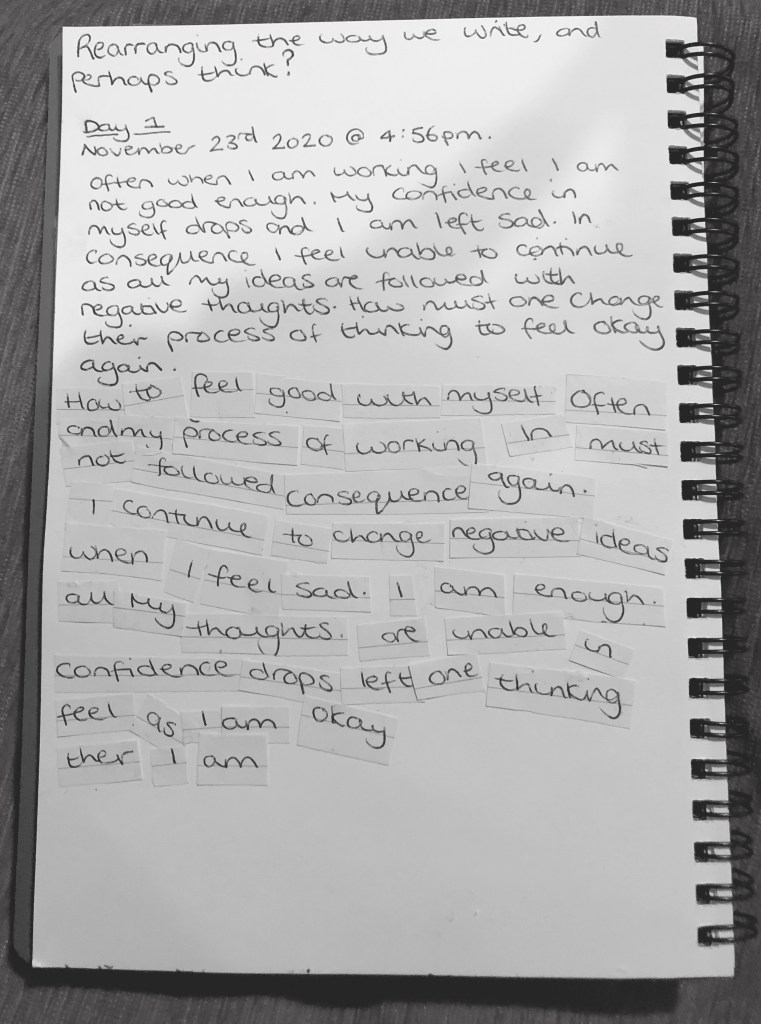 Rearranging the way we write, and
perhaps think?
Day 1
November 23rd 2020 @ 4:56pm.
Often when I am working I feel I am
not good enough. My confidence in
myself drops and I am left sad. In
consequence I feel unable to continue
as all my ideas are followed with
negative thoughts. How must one change
ther process of thinking to feel okay
again.
How to feel good with myself Often
and my process of working In must
not followed consequence again.
I continue to change negative ideas
when I feel sad. I am enough.
all My thoughts. are unable in
confidence drops left one thinking
feel as I am okay
ther I am